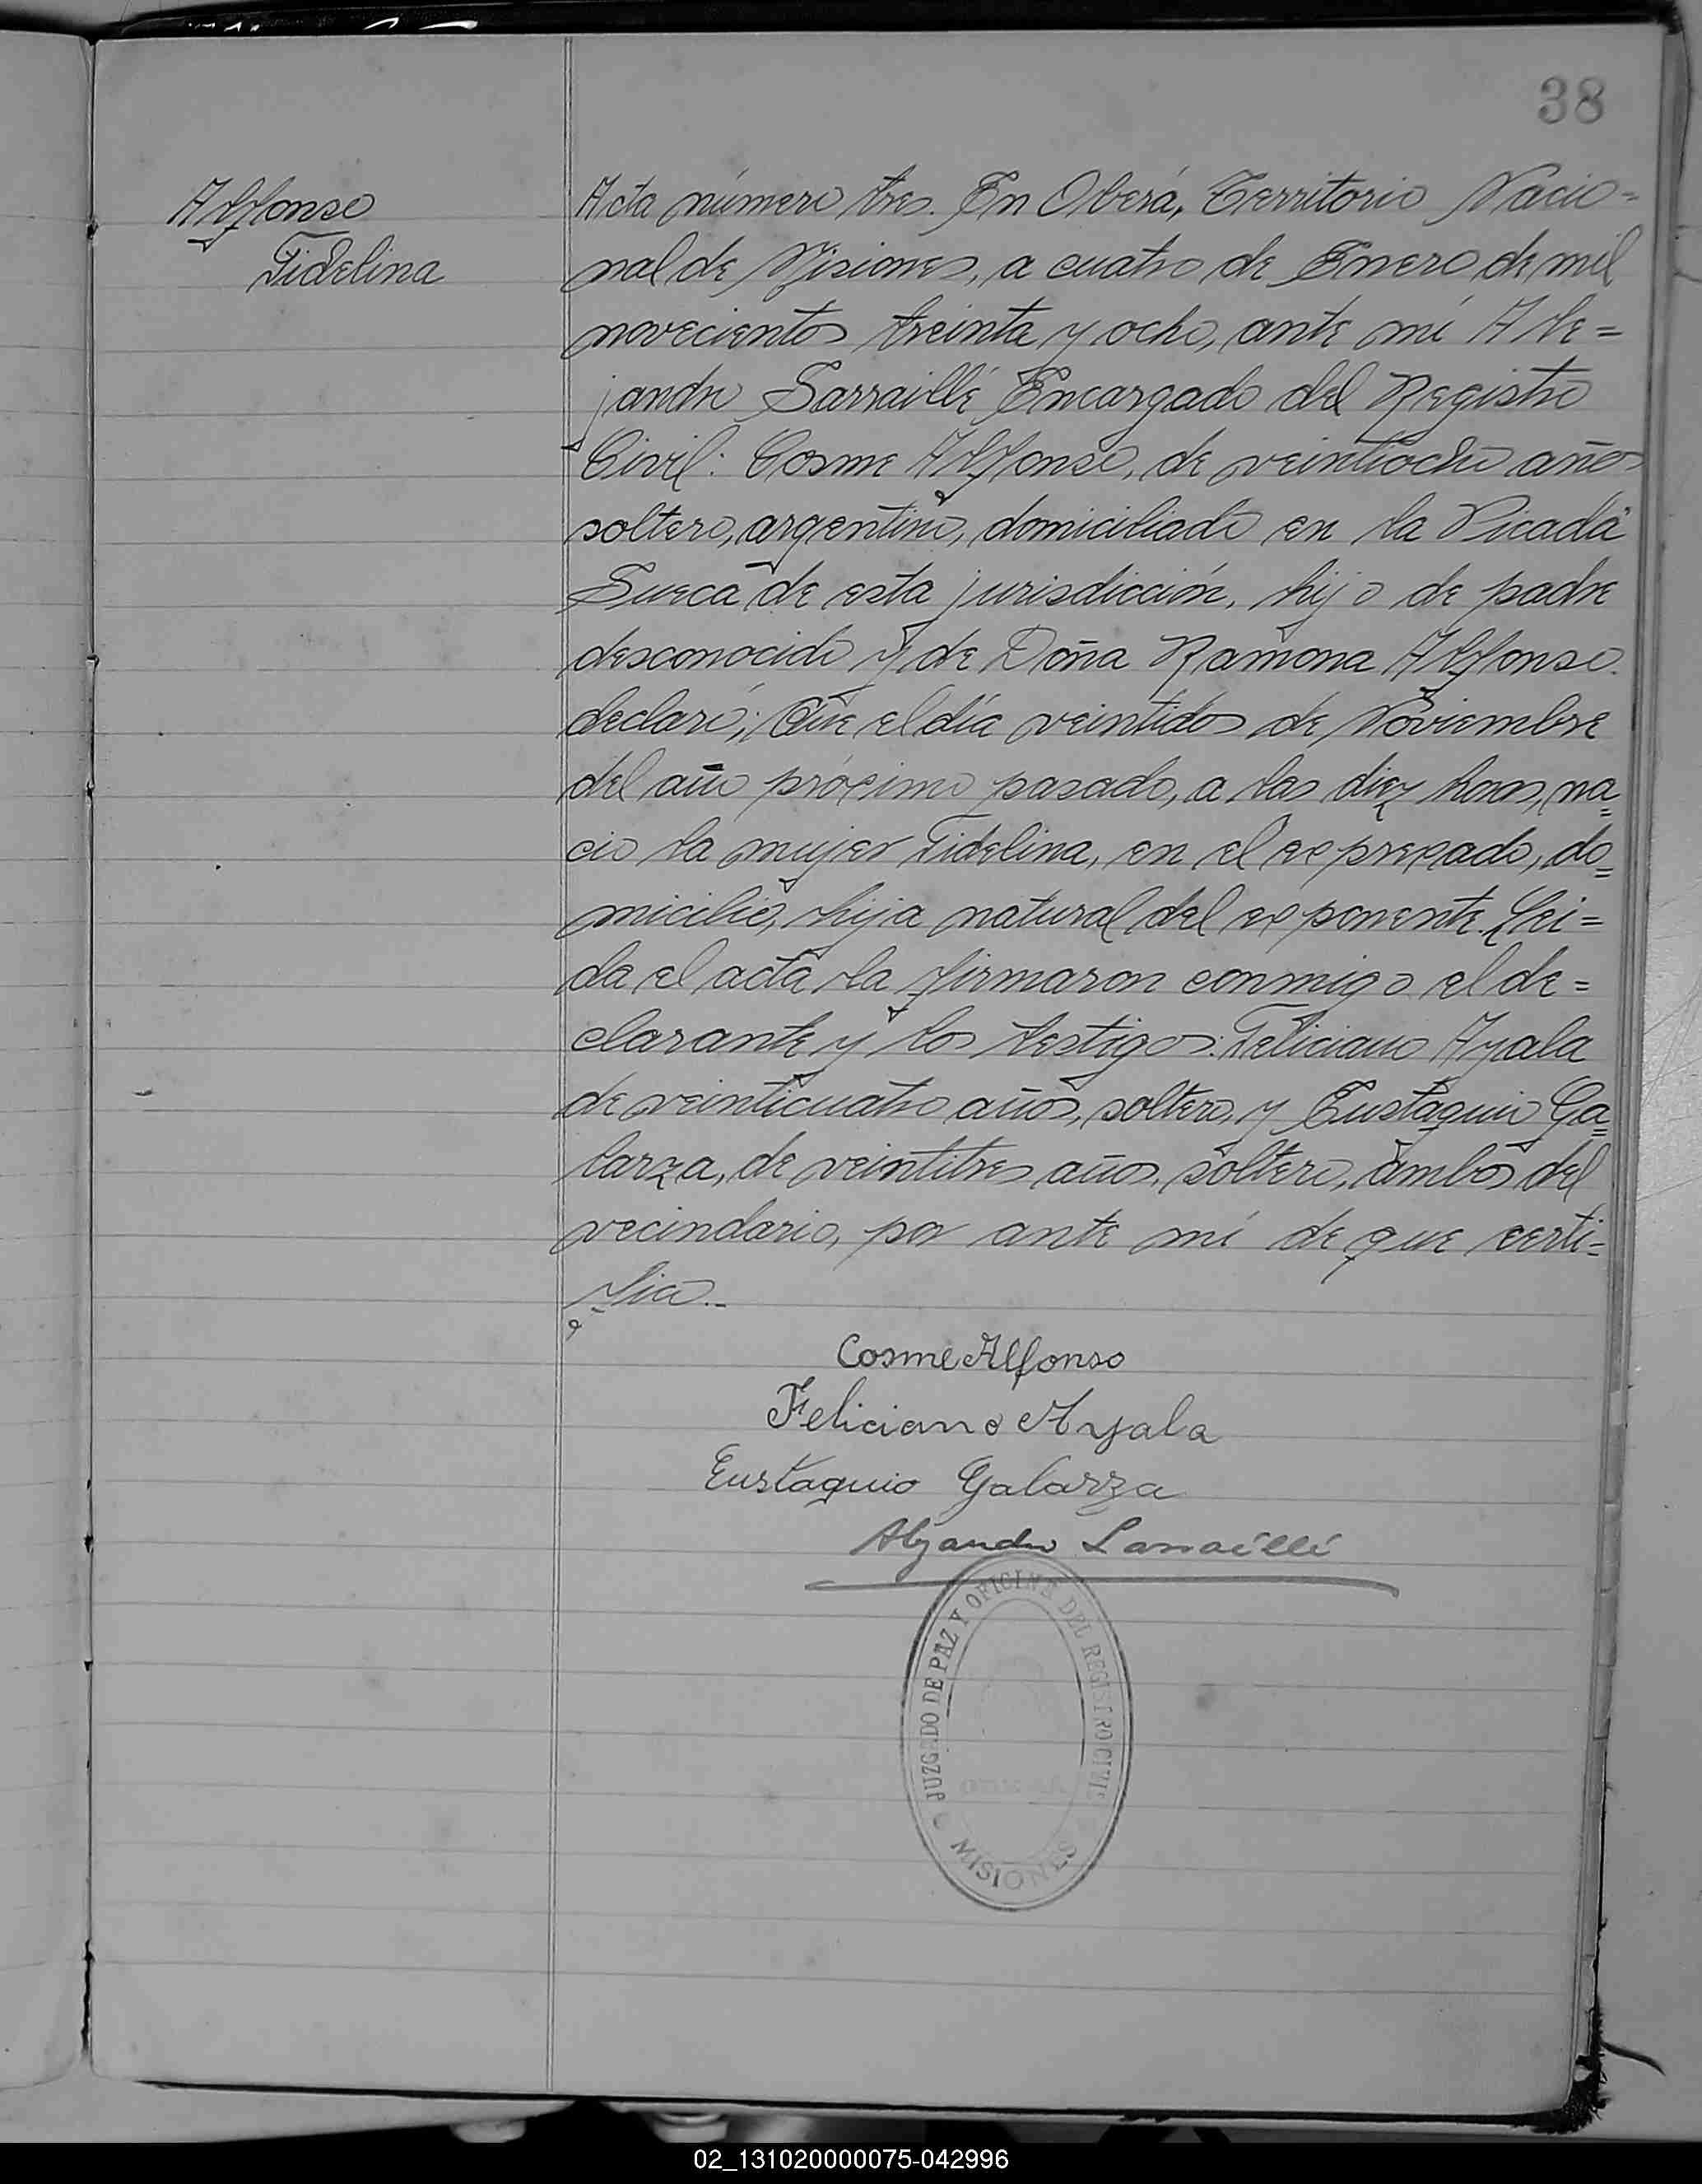 38
Alfonso
Fidelina
Acta número tres. En Oberá, Territorio Nacio=
nal de Misiones, a cuatro de Enero de mil
novecientos treinta y ocho, ante mí Ale=
jandro Sarraillé Encargado del Registro
Civil: Cosme Alfonso, de veintiocho años
soltero, argentino, domiciliado en la Picada
Sueca de esta jurisdicción, hijo de padre
desconocido y de Doña Ramona Alfonso.
declaró; Que el día veintidos de Noviembre
del año próximo pasado, a las diez horas, na=
cio la mujer Fidelina, en el expresado, do=
micilio, hija natural del exponente. Lei=
da el acta la firmaron conmigo el de=
clarante y los testigos: Feliciano Ayala
de veinticuatro años, soltero, y Eustaquio Ga=
larza, de veintitres años, soltero, ambos del
vecindario, por ante mí de que certi=
fico.-
Cosme Alfonso
Feliciano Ayala
Eustaquio Galarza
Alejandro Sarraillé
JUZGADO DE PAZ Y OFICINA DEL REGISTRO CIVIL
MISIONES
02_131020000075-042996